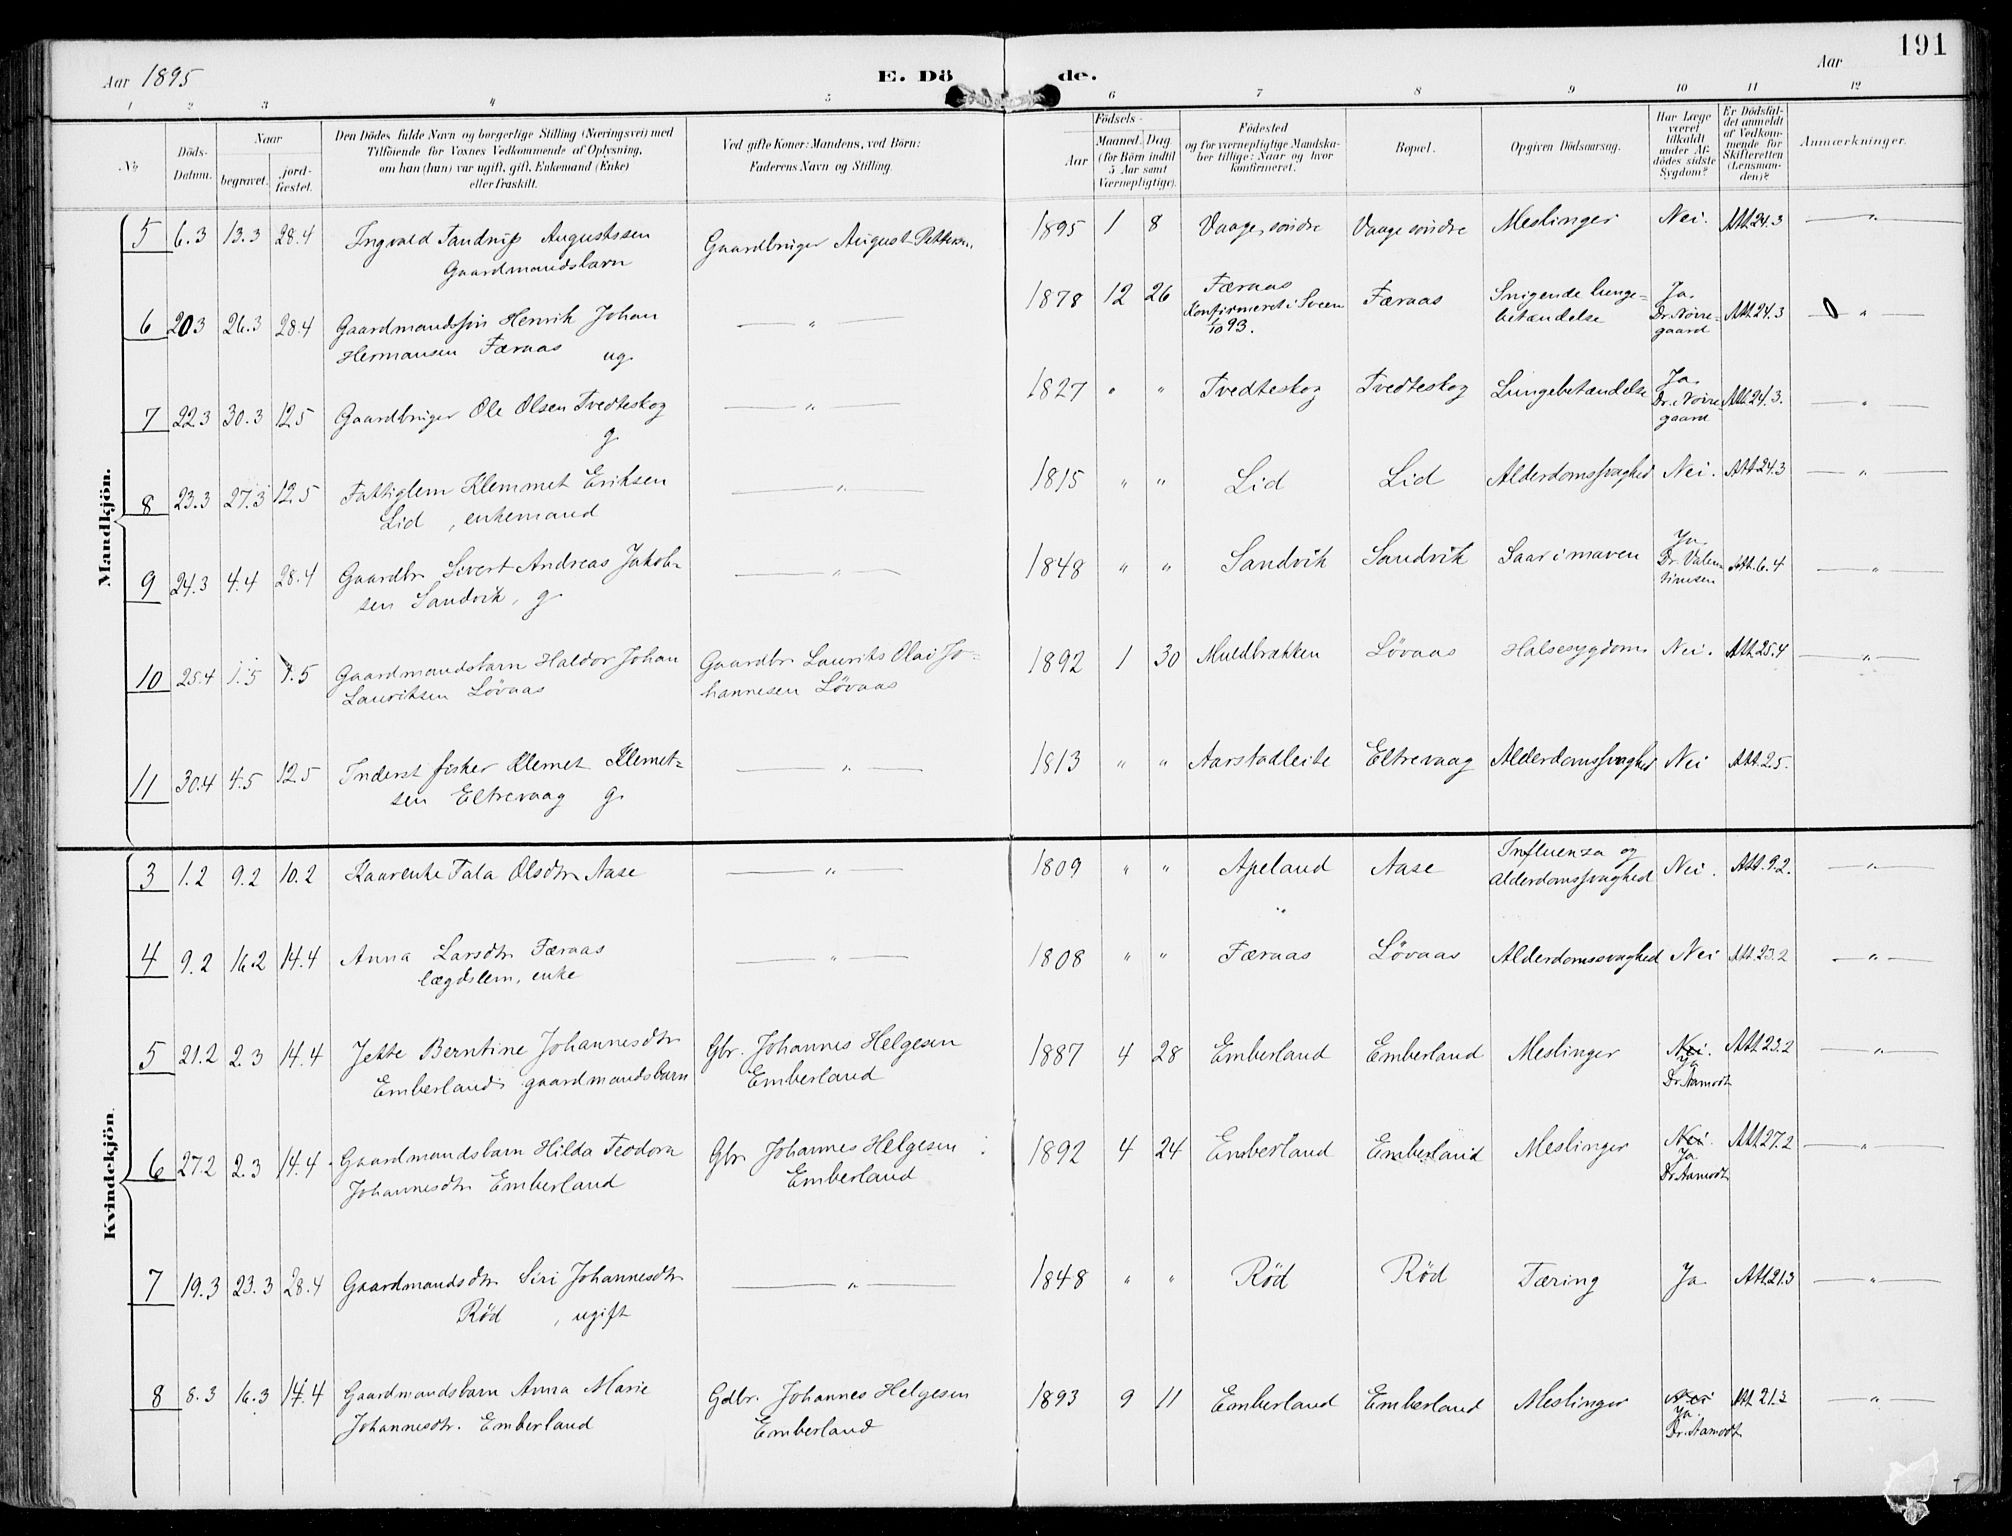 191
Aar 1895
E. Dö
de.
Aar
1 2 3 4 5 6 7 8 9 10 11 12
No
Döds-
Datum.
Naar
begravet.
jord-
fæstet.
Den Dödes fulde Navn og borgerlige Stilling (Næringsvei) med
Tilföiende for Voxnes Vedkommende af Oplysning,
om han (hun) var ugift, gift, Enkemand (Enke)
eller fraskilt.
Ved gifte Koner: Mandens, ved Börn:
Faderens Navn og Stilling.
Födsels-
Aar
Maaned. Dag
(for Börn indtil
5 Aar samt
Værnepligtige).
Födested
og for værnepligtige Mandska-
ber tillige: Naar og hvor
konfirmeret.
Bopæl.
Opgiven Dödsaarsag.
Har Læge
været
tilkaldt
under Af-
dödes sidste
Sygdom?
Er Dödsfal-
det anmeldt
af Vedkom-
mende for
Skifteretten
(Lensman-
den)?
Anmærkninger.
Mandkjön.
5 6.3 13.3 28.4 Ingvald Tandrup Augustssen Gaardbruger August Pettersen. 1895 1 8 Vaage, søndre Vaage søndre Meslinger Nei. Att. 24.3 "
Gaardmandsbarn
6 20.3 26.3 28.4 Gaardmandssøn Henrik Johan " 1878 12 26 Færaas Færaas Snigende lunge- Ja. Att. 24.3 "
Hermansen Færaas ug. Konfirmeret i Sveen betændelse Dr. Nørre-
10 93. gaard
7 22.3 30.3 12.5 Gaardbruger Ole Olsen Tvedteskog " 1827 " " Tvedteskog Tvedteskog Lungebetændelse Ja. Att. 24.3. "
g. Dr. Nørre-
gaard
8 23.3 27.3 12.5 Fattiglem Klemmet Eriksen " 1815 " " Lid Lid Alderdomssvaghed Nei. Att. 24.3 "
Lid, enkemand
9 24.3 4.4 28.4 Gaardbr. Sivert Andreas Jakob- " 1848 " " Sandvik Sandvik Saar i maven Ja Att. 6.4 "
sen Sandvik, g. Dr. Valen-
tinsen
10 25.4 1.5 1.5 Gaardmandsbarn Haldor Johan Gaardbr. Laurits Olai Jo- 1892 1 30 Muldbrækken Løvaas Halsesygdom Nei. Att. 25.4 "
Lauritsen Løvaas hannesen Løvaas
11 30.4 4.5 12.5 Inderst fisker Klemet Klemet- " 1813 " " Aarstadleite Eltrevaag Alderdomssvaghed Nei Att. 2.5.
sen Eltrevaag g.
Kvindekjön.
3 1.2 9.2 10.2 Kaarenke Tala Olsdtr. Aase " 1809 " " Apeland Aase Influenza og Nei. Att. 9.2. "
" alderdomssvaghed
4 9.2 16.2 14.4 Anna Larsdtr. Færaas " 1808 " " Færaas Løvaas Alderdomssvaghed Nei Att. 23.2 "
lægdslem, enke
5 21.2 2.3 14.4 Jette Berntine Johannesdtr. Gbr. Johannes Helgesen 1887 4 28 Emberland Emberland Meslinger Nei. Att. 23.2 "
Emberland gaardmandsbarn Emberland Ja
Dr. Aamodt
6 27.2 2.3 14.4 Gaardmandsbarn Hilda Teodora Gbr. Johannes Helgesen 1892 4 24 Emberland Emberland Meslinger Nei. Att. 27.2 "
Johannesdtr. Emberland Emberland Ja
Dr. Aamodt
7 19.3 23.3 28.4 Gaardmandsdtr. Siri Johannesdtr. " 1848 " " Rød Rød Tæring Ja Att. 21.3 "
Rød, ugift
8 8.3 16.3 14.4 Gaardmandsbarn Anna Marie Gdbr. Johannes Helgesen 1893 9 11 Emberland Emberland Meslinger Nei Att. 21.3 "
Johannesdtr. Emberland Emberland Ja
Dr. Aamodt